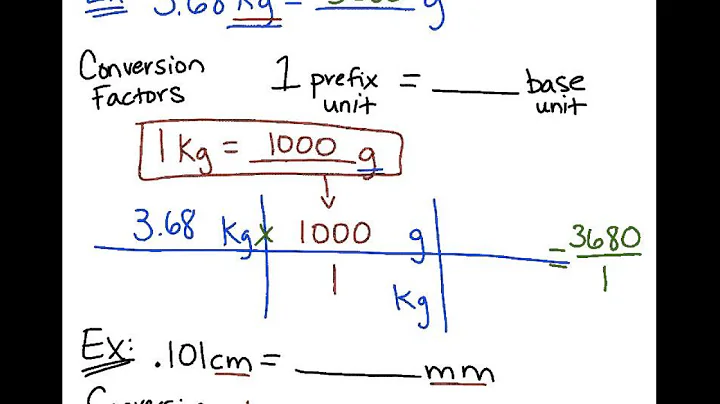 Ex: 3.68 kg = 3680 g
Conversion Factors 1 prefix unit = ______ base unit
1 Kg = 1000 g
3.68 Kg x 1000 g = 3680
1 Kg 1
Ex: .101 cm = ______ mm